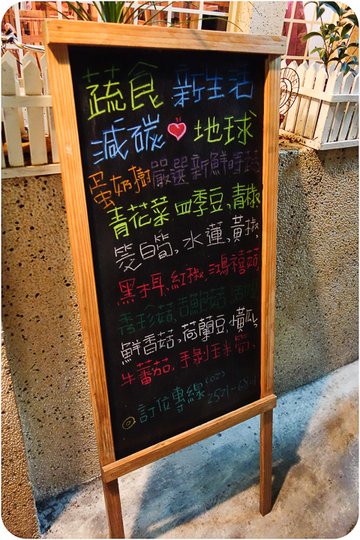 蔬食 新生活
減碳 地球
蛋奶樹 嚴選新鮮時蔬
青花菜 四季豆, 青椒
筊白筍, 水蓮, 黃椒,
黑木耳, 紅椒, 鴻禧菇
秀珍菇
鮮香菇, 荷蘭豆, 橫瓜,
牛蕃茄, 手剝玉米筍,
訂位專線 (02)